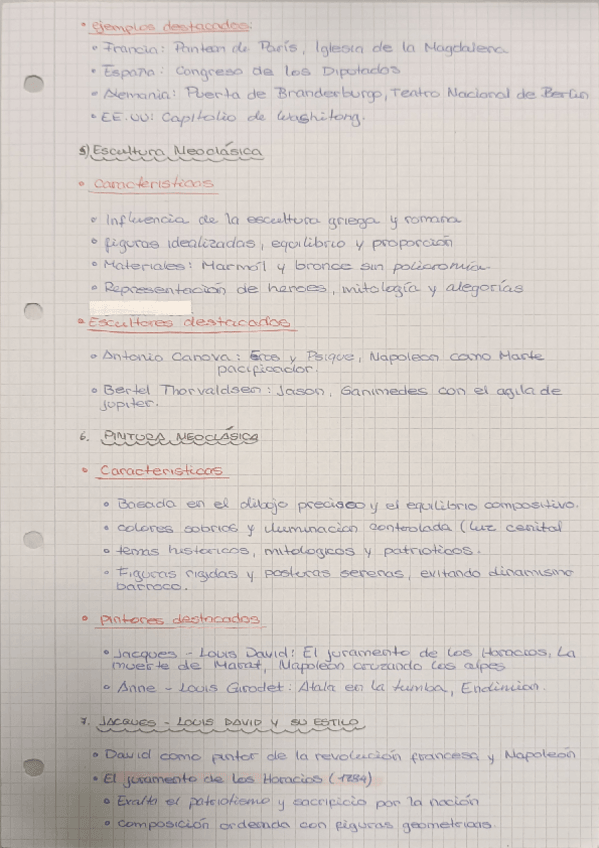 • Ejemplos destacados:
• Francia: Panteón de París, Iglesia de la Magdalena
• España: Congreso de los Diputados
• Alemania: Puerta de Branderburgo, Teatro Nacional de Berlín
• EE.UU: Capitolio de Washitong.
5) Escultura Neoclásica
• Características
• Influencia de la escultura griega y romana
• figuras idealizadas, equilibrio y proporción
• Materiales: Marmól y bronce sin policromía.
• Representación de heroes, mitología y alegorías
• Escultores destacados
• Antonio Canova: Eros y Psique, Napoleon como Marte
pacificador.
• Bertel Thorvaldsen: Jason, Ganimedes con el agila de
jupiter.
6. PINTURA NEOCLÁSICA
• Características
• Basada en el dibujo preciso y el equilibrio compositivo.
• colores sobrios y iluminación controlada (luz cenital
• temas historicos, mitologicos y patrioticos.
• Figuras rigidas y posturas serenas, evitando dinamismo
barroco.
• Pintores destacados
• Jacques - Louis David: El juramento de los Horacios, La
muerte de Marat, Napoleón cruzando los alpes
• Anne - Louis Girodet: Atala en la tumba, Endimion.
7. JACQUES - LOUIS DAVID Y SU ESTILO
• David como pintor de la revolución francesa y Napoleón
• El juramento de los Horacios (1784)
• Exalta el patriotismo y sacrificio por la nación
• composición ordenada con figuras geometricas.